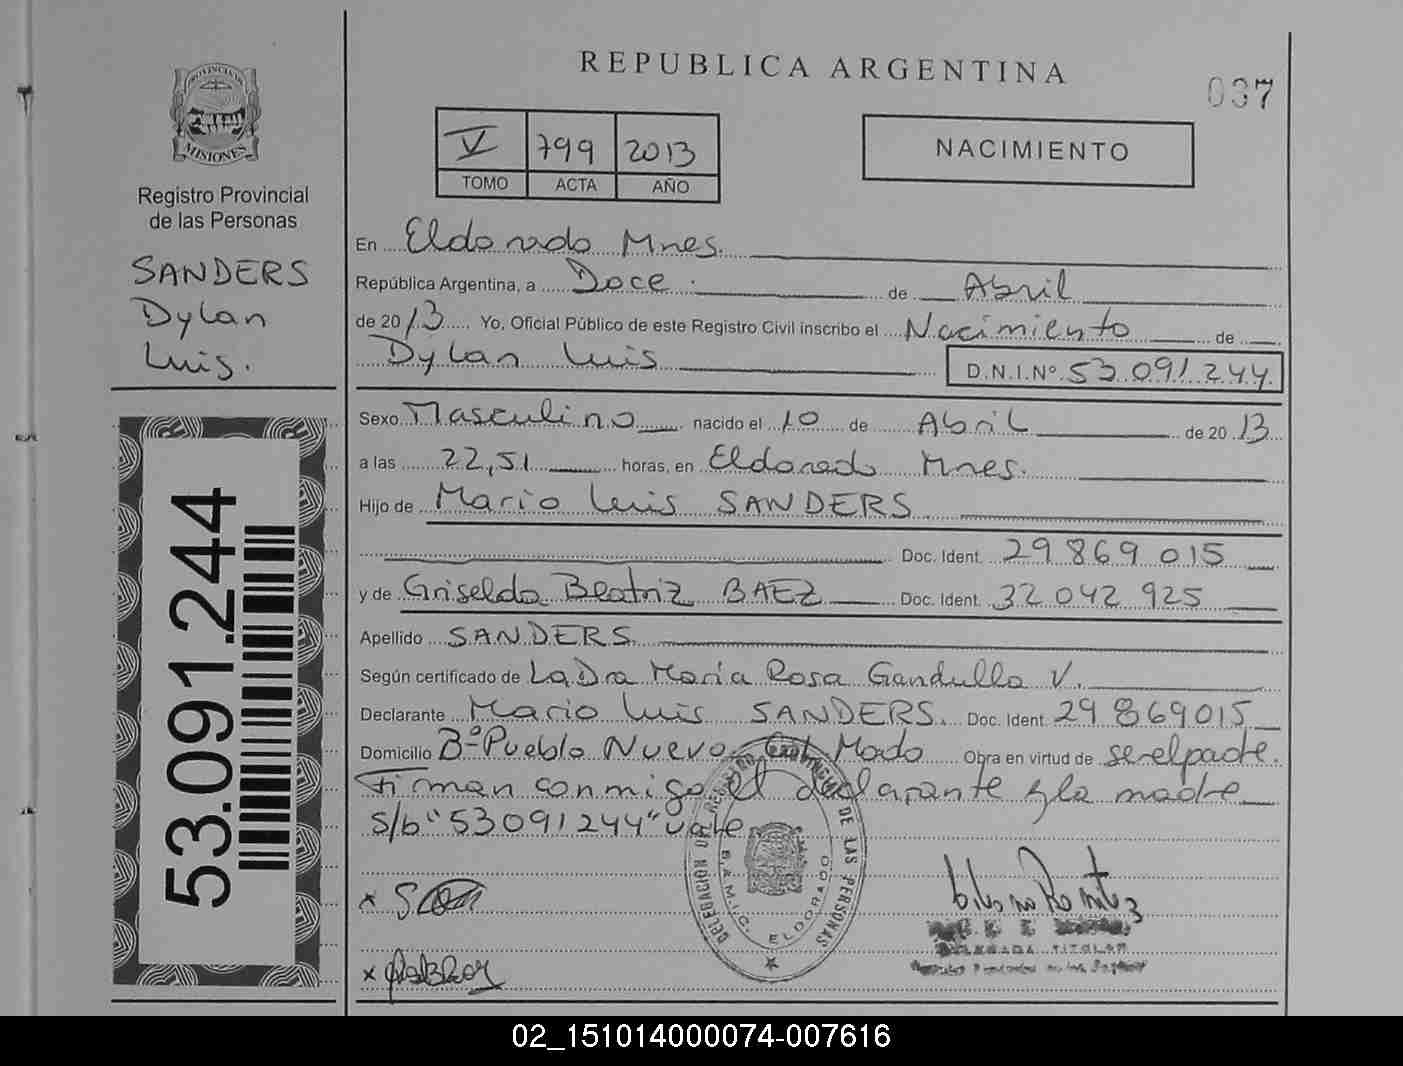 REPUBLICA ARGENTINA
037
PROVINCIA DE
MISIONES
Registro Provincial
de las Personas
SANDERS
Dylan
Luis.
53.091.244
V 799 2013
TOMO ACTA AÑO
NACIMIENTO
En Eldorado Mnes.
República Argentina, a Doce de Abril
de 2013 Yo, Oficial Público de este Registro Civil inscribo el Nacimiento de
Dylan Luis D.N.I.Nº 53.091.244
Sexo Masculino nacido el 10 de Abril de 2013
a las 22,51 horas, en Eldorado Mnes.
Hijo de Mario Luis SANDERS
Doc. Ident. 29.869.015
y de Griselda Beatriz BAEZ Doc. Ident. 32.042.925
Apellido SANDERS.
Según certificado de La Dra Maria Rosa Gandulla V.
Declarante Mario Luis SANDERS. Doc. Ident. 29 869015
Domicilio Bº Pueblo Nuevo Mado Obra en virtud de ser el padre.
Firman conmigo el declarante y la madre
s/b "53091244" vale
DELEGACION DEL REGISTRO PROVINCIAL DE LAS PERSONAS
S.A.M.I.C. ELDORADO
DELEGADA TITULAR
02_151014000074-007616